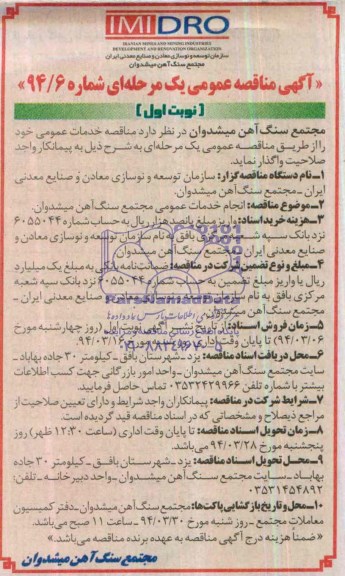 IMIDRO
IRANIAN MINES AND MINING INDUSTRIES
DEVELOPMENT AND RENOVATION ORGANIZATION
سازمان توسعه و نوسازی معادن و صنایع معدنی ایران
مجتمع سنگ آهن میشدوان
« آگهی مناقصه عمومی یک مرحله‌ای شماره ۹۴/۶ »
( نوبت اول )
مجتمع سنگ آهن میشدوان در نظر دارد مناقصه خدمات عمومی خود
را از طریق مناقصه عمومی یک مرحله‌ای به شرح ذیل به پیمانکار واجد
صلاحیت واگذار نماید.
۱ـ نام دستگاه مناقصه گزار: سازمان توسعه و نوسازی معادن و صنایع معدنی
ایران ـ مجتمع سنگ آهن میشدوان.
۲ـ موضوع مناقصه: انجام خدمات عمومی مجتمع سنگ آهن میشدوان.
۳ـ هزینه خرید اسناد: واریز مبلغ پانصد هزار ریال به حساب شماره ۶۰۵۵۰۴۴
نزد بانک سپه شعبه مرکزی بافق به نام سازمان توسعه و نوسازی معادن و
صنایع معدنی ایران ـ مجتمع سنگ آهن میشدوان
۴ـ مبلغ و نوع تضمین شرکت در مناقصه: ضمانت نامه بانکی به مبلغ یک میلیارد
ریال یا واریز مبلغ تضمین به حساب شماره ۶۰۵۵۰۴۴ نزد بانک سپه شعبه
مرکزی بافق به نام سازمان توسعه و نوسازی معادن و صنایع معدنی ایران ـ
مجتمع سنگ آهن میشدوان
۵ـ زمان فروش اسناد: از تاریخ نشر آگهی نوبت اول (روز چهارشنبه مورخ
۹۴/۰۳/۰۶) تا پایان وقت اداری روز شنبه مورخ ۹۴/۰۳/۱۶
۶ـ محل دریافت اسناد مناقصه: یزد ـ شهرستان بافق ـ کیلومتر ۳۰ جاده بهاباد ـ
سایت مجتمع سنگ آهن میشدوان ـ واحد امور بازرگانی جهت کسب اطلاعات
بیشتر با شماره تلفن ۰۳۵۳۲۴۲۹۹۶۶ تماس حاصل فرمایید.
۷ـ شرایط شرکت در مناقصه: پیمانکاران واجد شرایط و دارای تعیین صلاحیت از
مراجع ذیصلاح و مشخصاتی که در اسناد مناقصه قید گردیده است.
۸ـ زمان تحویل اسناد مناقصه: تا پایان وقت اداری (ساعت ۱۲:۳۰ ظهر) روز
پنجشنبه مورخ ۹۴/۰۳/۲۸ می‌باشد.
۹ـ محل تحویل اسناد مناقصه: یزد ـ شهرستان بافق ـ کیلومتر ۳۰ جاده
بهاباد ـ سایت مجتمع سنگ آهن میشدوان ـ واحد دبیرخانه ـ تلفن:
۰۳۵۳۱۴۵۴۸۹۲
۱۰ـ محل و تاریخ بازگشایی پاکت‌ها: مجتمع سنگ آهن میشدوان ـ دفتر کمیسیون
معاملات مجتمع ـ روز شنبه مورخ ۹۴/۰۳/۳۰ ـ ساعت ۱۱ صبح می‌باشد.
« ضمنا هزینه درج آگهی مناقصه به عهده برنده مناقصه می‌باشد.»
مجتمع سنگ آهن میشدوان